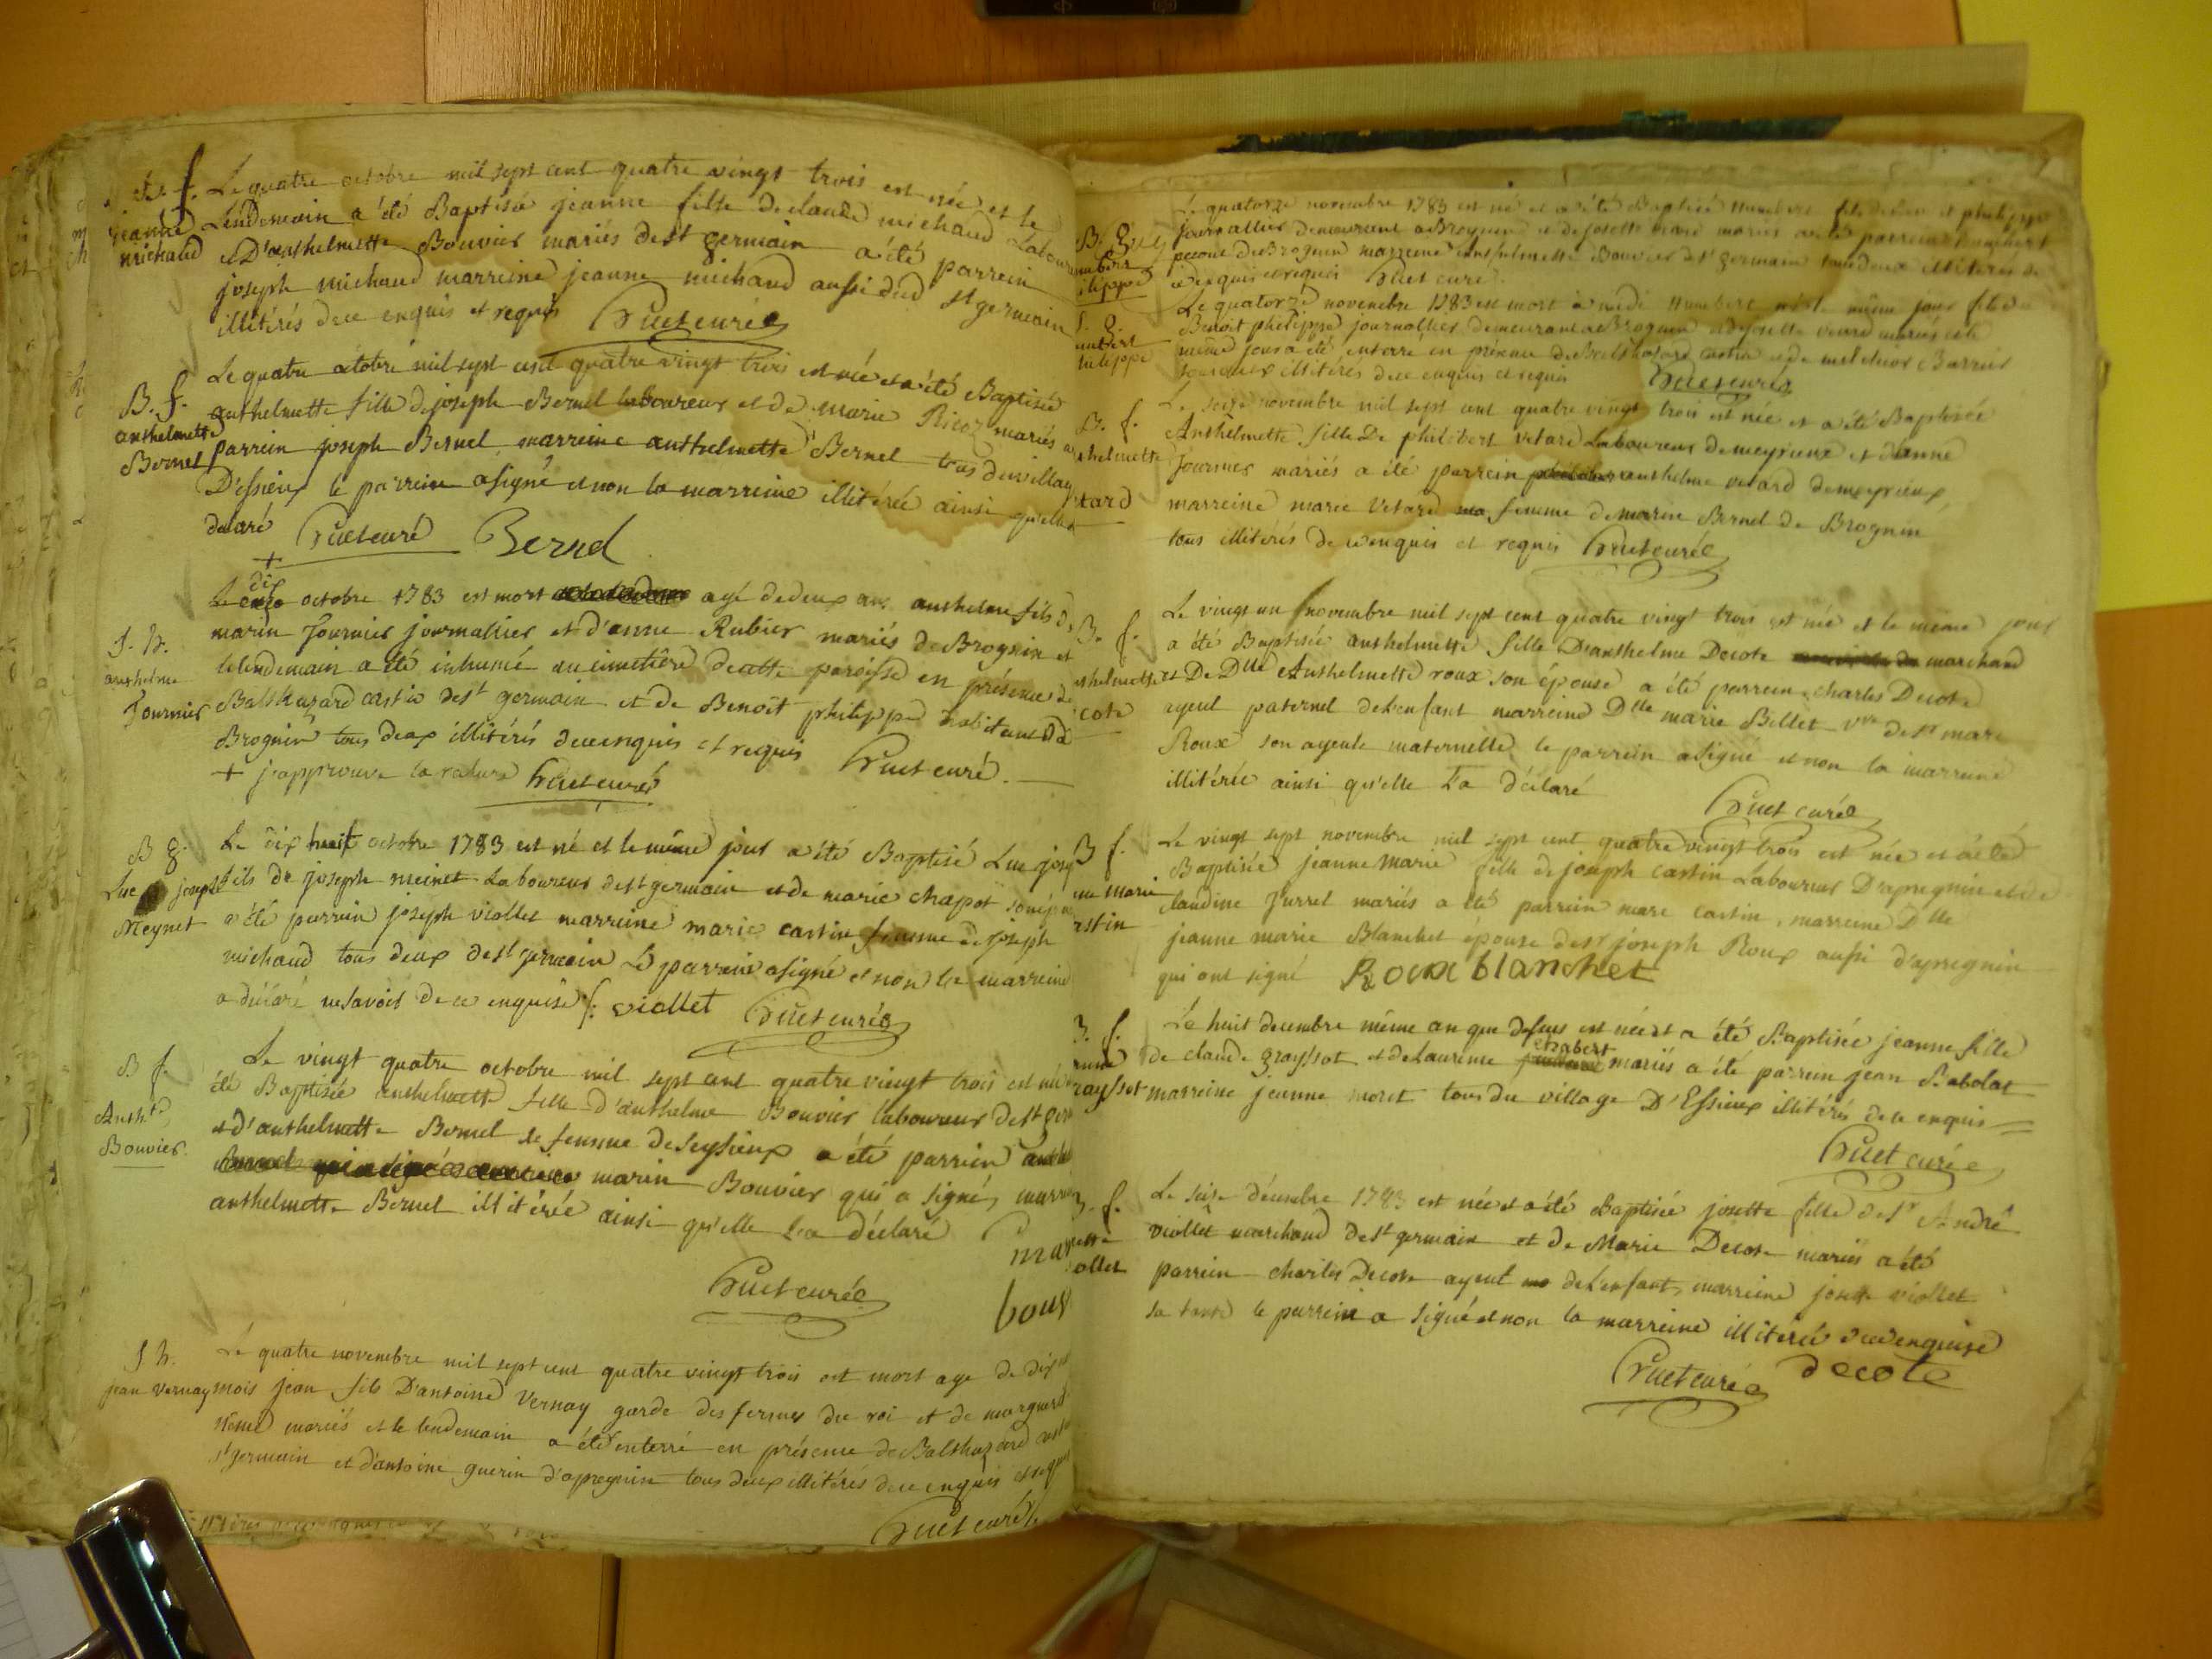 B. f. Le quatre octobre mil sept cent quatre vingt trois est née et le
jeanne Lendemain a été Baptisée jeanne fille de claude michaud Laboureur
michaud et D'anthelmette Bouvier mariés de st germain a été parrein
joseph michaud marreine jeanne michaud aussi dud st germain
illitérés de ce enquis et requis huet curé
Le quatre octobre mil sept cent quatre vingt trois est née et a été Baptisée
B. f. anthelmette fille de joseph Bernel laboureur et de marie Ricoz mariés
anthelmette
Bernel parrein joseph Bernel marreine anthelmette Bernel tous du village
D'essieux le parrein a signé et non la marreine illitérée ainsi qu'elle l'a
déclaré huet curé Bernel
+
dix
Le onze octobre 1783 est mort agé de deux ans anthelme fils de
J. h. marin Fournier journallier et d'anne Rubier mariés de Brognin et
anthelme lelendemain a été inhumé au cimetière de cette paroisse en présence de
Fournier Balthazard castin de st germain et de Benoit philippe habitant de
Brognin tous deux illitérés de ce enquis et requis huet curé.
+ j'approuve la rature huet curé
B g. Le dix huit octobre 1783 est né et le même jour a été Baptisé Luc joseph
Luc joseph fils de joseph meinet Laboureur de st germain et de marie chapot
Meynet a été parrein joseph viollet marreine marie castin femme de joseph
michaud tous deux de st germain Le parrein a signé et non la marreine
a déclaré ne savoir de ce enquise viollet huet curé
B f. Le vingt quatre octobre mil sept cent quatre vingt trois est née
Antht. été Baptisée anthelmette fille d'anthelme Bouvier laboureur de st ger
Bouvier. et d'anthelmette Bernel sa femme de seyssieux a été parrein
marin Bouvier qui a signé, marr
anthelmette Bernel illitérée ainsi qu'elle l'a déclaré
mar
bouv
huet curé
J h. Le quatre novembre mil sept cent quatre vingt trois est mort age de dix
jean vernay mois jean fils D'antoine Vernay garde des fermes du roi et de marguerite
mariés et le lendemain a été enterré en présence de Balthazard cast
st germain et d'antoine guerin d'apregnin tous deux illitérés de ce enquis et requis
huet curé
B. g. Le quatorze novembre 1783 est né et a été Baptisé Humbert fils de Benoit philippe
journallier demeurant a Brognin et de josette mariés a été parrein humbert
de Brognin marreine anthelmette Bouvier de st germain tous deux illitérés de
ilippe ce enquis et requis huet curé.
Le quatorze novembre 1783 est mort à midi Humbert né le même jour fils de
Benoit philippe journallier demeurant a Brognin et de josette mariés et le
même jour a été enterré en présence de Balthazard castin et de melchior Barrier
tous deux illitérés de ce enquis et requis huet curé
Le seize novembre mil sept cent quatre vingt trois est née et a été Baptisée
B. f. Anthelmette fille De philibert vetard Laboureur de meyrieux et d'anne
thelmette Fournier mariés a été parrein anthelme vetard de meyrieux,
tard marreine marie Vetard femme de marin Bernel de Brognin
tous illitérés de ce enquis et requis huet curé
Le vingt un novembre mil sept cent quatre vingt trois est née et le meme jour
B. f. a été Baptisée anthelmette fille D'anthelme Decote marchand
thelmette et De Dlle Anthelmette roux son épouse a été parrein charles Decote
cote ayeul paternel de l'enfant marreine Dlle marie Billet vve de sr marc
Roux son ayeule maternelle, le parrein a signé et non la marreine
illitérée ainsi qu'elle l'a déclaré
huet curé
B f. Le vingt sept novembre mil sept cent quatre vingt trois est née et a été
Baptisée jeanne marie fille de joseph castin Laboureur D'apregnin et de
ne marie claudine Jurret mariés a été parrein marc castin, marreine Dlle
astin jeanne marie Blanchet épouse de sr joseph Roux aussi d'apregnin
qui ont signé Roux blanchet
B. f. Le huit decembre même an que dessus est née et a été Baptisée jeanne fille
chabert
anne de claude grayssot et de Laurence mariés a été parrein jean Babolat
rayssot marreine jeanne moret tous du village D'Essieux illitérés de ce enquis
huet curé
B. f. Le seize décembre 1783 est née et a été Baptisée josette fille de sr André
viollet marchand de st germain et de Marie Decote mariés a été
ollet parrein charles Decote ayeul de l'enfant, marreine josette viollet
sa tante le parrein a signé et non la marreine illitérée de ce enquise
huet curé decote